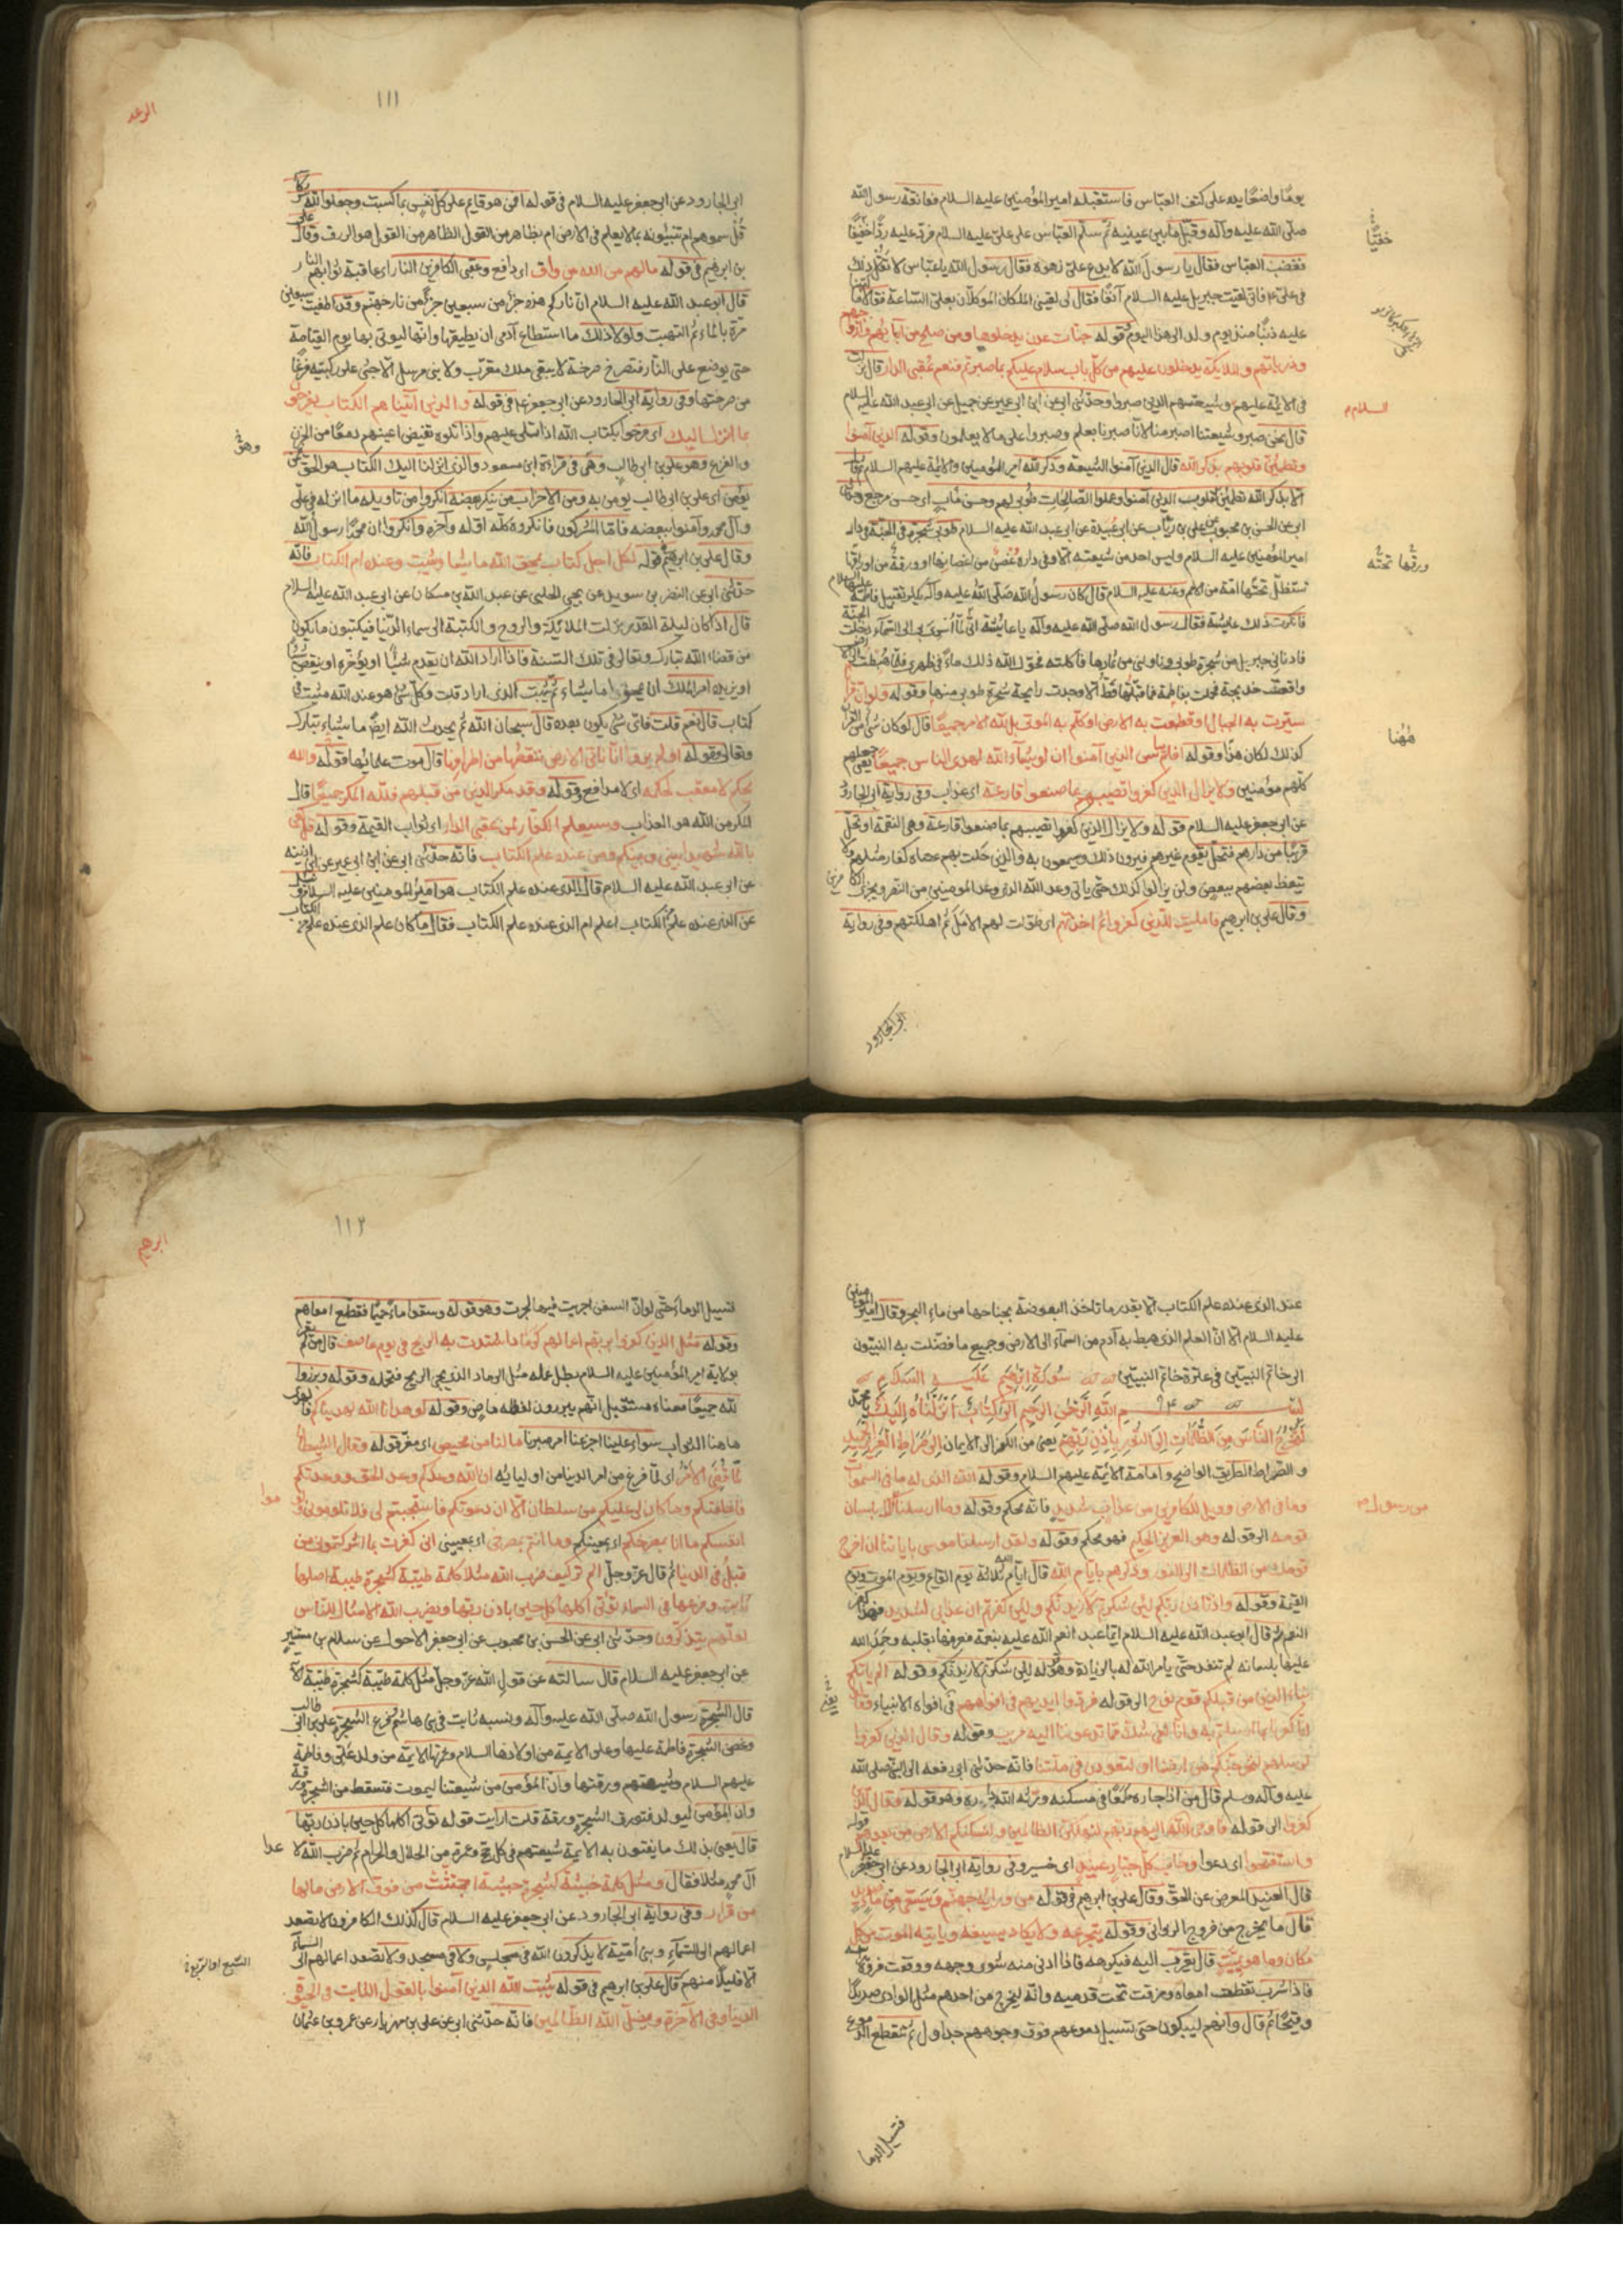 يومًا واضعًا يده على كتف العبّاس فاستقبله اميرالمؤمنين عليه السلام فعانقه رسول الله
صلّى الله عليه وآله وقبّل مابين عينيه ثم سلّم العبّاس على علىّ عليه السلام فردّ عليه ردًّا خفيفًا
خفيًّا
فغضب العبّاس فقال يا رسول الله لا يدع علىّ زهوه فقال رسول الله يا عبّاس لا تقل ذلك
فى علىّ فانى لقيت جبريل عليه السلام آنفًا فقال لى لقينى الملكان الموكلان بعلىّ الساعة فقالا ما
عليه ذنبًا منذ يوم ولد الى هذا اليوم قوله جنّات عدن يدخلونها ومن صلح من آبائهم وازواجهم
وذرياتهم والملايكة يدخلون عليهم من كلّ باب سلام عليكم بما صبرتم فنعم عقبى الدار قال نزلت
فى الايمة عليهم وشيعتهم الذين صبروا وحدّثنى ابى عن ابن ابى عمير عن جميل عن ابى عبد الله عليه السلام
السلام
قال نحن صبر وشيعتنا اصبر منا لانا صبرنا بعلم وصبروا على ما لا يعلمون وقوله الذين آمنوا
وتطمئنّ قلوبهم بذكر الله قال الذين آمنوا الشيعة وذكر الله امير المؤمنين والائمة عليهم السلام ثم قال
الا بذكر الله تطمئن القلوب الذين آمنوا وعملوا الصالحات طوبى لهم وحسن مآب اى حسن مرجع وحدثنى
ابى عن الحسن بن محبوب عن على بن رئاب عن ابى عبيدة عن ابى عبد الله عليه السلام طوبى شجرة فى الجنّة فى دار
امير المؤمنين عليه السلام وليس احد من شيعته الّا وفى داره غصن من اغصانها وورقة من اوراقها
ورقها تحته
تستظلّ تحتها امّة من الامم وعنه عليه السلام قال كان رسول الله صلّى الله عليه وآله يكثر تقبيل فاطمة عليها السلام
فانكرت ذلك عايشة فقال رسول الله صلّى الله عليه وآله يا عايشة انّى لمّا اسرى بى الى السمآء دخلت الجنّة
فادنانى جبريل من شجرة طوبى وناولنى من ثمارها فاكلته فحوّل الله ذلك ماءً فى ظهرى فلمّا هبطت الى الارض
واقعت خديجة فحملت بفاطمة فما قبّلتها قطّ الّا وجدت رايحة شجرة طوبى منها وقوله ولو انّ قرآنا
سيّرت به الجبال او قطعت به الارض او كلّم به الموتى بل لله الامر جميعًا قال لو كان شئ من القرآن
كذلك لكان هذا وقوله افلم ييأس الذين آمنوا ان لو يشآء الله لهدى الناس جميعًا يعنى جعلهم
هٰهُنا
كلهم مؤمنين ولا يزال الذين كفروا تصيبهم بما صنعوا قارعة اى عذاب وفى رواية ابى الجارود
عن ابى جعفر عليه السلام قوله ولا يزال الذين كفروا تصيبهم بما صنعوا قارعة وهى النقمة او تحلّ
قريبًا من دارهم فتحلّ بقوم غيرهم فيرون ذلك ويسمعون به والذين حلت بهم عصاة كفار مثلهم ولا
يتعظ بعضهم ببعض ولن يزالوا كذلك حتّى ياتى وعد الله الذى وعد المومنين من النصر ويخزى الكافرين
وقال على بن ابرهيم فامليت للذين كفروا ثم اخذتهم اى طولت لهم الامل ثم اهلكتهم وفى رواية
ابى الجارود
الرعد
١١١
ابى الجارود عن ابى جعفر عليه السلام فى قوله افمن هو قايم على كلّ نفس بما كسبت وجعلوا لله شركآء
قل سموهم ام تنبئونه بما لا يعلم فى الارض ام بظاهر من القول الظاهر من القول هو الرزق وقال على
بن ابرهيم فى قوله مالهم من الله من واق اى دافع وعقبى الكافرين النار اى عاقبة ثوابهم النار
قال ابو عبد الله عليه السلام انّ ناركم هذه جزء من سبعين جزءًا من نار جهنّم وقد اطفئت سبعين
مرّة بالماء ثم التهبت ولولا ذلك ما استطاع آدمى ان يطيقها وانّها ليوتى بها يوم القيامة
حتى يوضع على النار فتصرخ صرخة لا يبقى ملك مقرّب ولا نبى مرسل الّا جثى على ركبتيه فزعًا
من صرختها وفى رواية ابى الجارود عن ابى جعفر فى قوله والذين آتيناهم الكتاب يفرحون
بما انزل اليك اى فرحوا بكتاب الله اذا تتلى عليهم واذا تلوه تفيض اعينهم دمعًا من الحزن
والفزع وهو على بن ابى طالب وهى فى قراءة ابن مسعود والذى انزلنا اليك الكتاب هو الحقّ ومن
يؤمن اى على بن ابى طالب يومن به ومن الاحزاب من ينكر بعضه انكروا من تاويله ما انزله فى علىّ
وآل محمد وآمنوا ببعضه فامّا المشركون فانكروه كلّه اوّله وآخره وانكروا ان محمدًا رسول الله
وقال على بن ابرهيم قوله لكل اجل كتاب يمحوا الله ما يشآء ويثبت وعنده ام الكتاب فانّه
حدّثنى ابى عن النضر بن سويد عن يحيى الحلبى عن عبد الله بن مسكان عن ابى عبد الله عليه السلام
قال اذا كان ليلة القدر نزلت الملايكة والروح والكتبة الى سماء الدّنيا فيكتبون ما يكون
من قضاء الله تبارك وتعالى فى تلك السّنة فاذا اراد الله ان يقدم شيئًا او يؤخّره او ينقص شيئًا
او يزيده امر الملك ان يمحو ما يشاء ثم يثبت الذى اراد قلت وكلّ شئ هو عند الله مثبت فى
كتاب قال نعم قلت فاىّ شئ يكون بعده قال سبحان الله ثم يحدث الله ايضًا ما يشاء تبارك
وتعالى وقوله اولم يروا انّا ناتى الارض ننقصها من اطرافها قال موت علمائها قوله والله
يحكم لا معقب لحكمه اى لا مدافع وقوله وقد مكر الذين من قبلهم فلله المكر جميعًا قال
المكر من الله هو العذاب وسيعلم الكفار لمن عقبى الدار اى ثواب القيمة وقوله قل كفى
بالله شهيدا بينى وبينكم ومن عنده علم الكتاب فانه حدّثنى ابى عن ابن ابى عمير عن ابن اذينه
عن ابى عبد الله عليه السلام قال الذى عنده علم الكتاب هو امير المؤمنين عليه السلام وسئل
عن الذى عنده علم من الكتاب اعلم ام الذى عنده علم الكتاب فقال ما كان علم الذى عنده علم من الكتاب
عند الذى عنده علم الكتاب الّا بقدر ما تاخذ البعوضة بجناحها من ماء البحر وقال امير المومنين
عليه السلام الا انّ العلم الذى هبط به آدم من السمآء الى الارض وجميع ما فضّلت به النبيّون
الى خاتم النبيّين فى عترة خاتم النبيّين سُورَة اِبْرٰهِيم عَلَيْهِ السَّلَام
بِسْمِ اللهِ الرَّحْمٰنِ الرَّحِيمِ الٓرٰ كِتَابٌ اَنْزَلْنَاهُ اِلَيْكَ يا محمّد
لِتُخْرِجَ النَّاسَ مِنَ الظُّلُمَاتِ اِلَى النُّورِ بِاِذْنِ رَبِّهِمْ يعنى من الكفر الى الايمان اِلٰى صِرَاطِ الْعَزِيزِ الْحَمِيدِ
والصّراط الطريق الواضح وامامة الائمة عليهم السلام وقوله الله الذى له ما فى السموات
وما فى الارض وويل للكافرين من عذاب شديد فانه محكم وقوله وما ارسلنا الّا بلسان
من رسول
قومه الى قوله وهو العزيز الحكيم فهو محكم وقوله ولقد ارسلنا موسى باياتنا ان اخرج
قومك من الظلمات الى النور وذكرهم بايّام الله قال ايّام الله ثلاثة يوم القايم ويوم الموت ويوم
القيمة وقوله واذ تاذن ربّكم لئن شكرتم لازيدنّكم ولئن كفرتم ان عذابى لشديد فهذا كفر
النعم ثم قال ابو عبد الله عليه السلام ايّما عبد انعم الله عليه بنعمة فعرفها بقلبه وحمد الله
عليها بلسانه لم تنفد حتّى يامر الله له بالزيادة وهو قوله لئن شكرتم لازيدنّكم وقوله الم ياتكم
نبأ الذين من قبلكم قوم نوح الى قوله فردوا ايديهم فى افواههم فى افواه الانبياء فقالوا
انّا كفرنا بما ارسلتم به وانا لفى شكّ ممّا تدعوننا اليه مريب وقوله وقال الذين كفروا
لرسلهم لنخرجنّكم من ارضنا او لتعودن فى ملّتنا فانه حدّثنى ابى رفعه الى النبىّ صلى الله
عليه وآله وسلم قال من آذى جاره طمعًا فى مسكنه ورّثه الله داره وهو قوله وقال الذين
كفروا الى قوله فاوحى اليهم ربّهم لنهلكنّ الظالمين ولنسكننّكم الارض من بعدهم قوله
واستفتحوا اى دعوا وخاب كلّ جبّار عنيد اى خسر وفى رواية ابى الجارود عن ابى جعفر عليه السلام
قال العنيد المعرض عن الحقّ وقال على بن ابرهيم فى قوله من ورآئه جهنّم ويسقى من ماءٍ صديد
قال ما يخرج من فروج الزوانى وقوله يتجرعه ولا يكاد يسيغه وياتيه الموت من كل
مكان وما هو بميّت قال يقرب اليه فيكرهه فاذا ادنى منه شوى وجهه ووقعت فروة راسه
فاذا شرب تقطعت امعاه ومزقت تحت قدميه وانّه ليخرج من احدهم مثل الوادى صديدًا
وقيحًا ثم قال وانهم ليبكون حتى تسيل دموعهم فوق وجوههم جداول ثم تنقطع الدموع
فتسيل الدما
ابرهيم
١١٢
فتسيل الدماء حتّى لو انّ السفن اجريت فيها لجرت وهو قوله وسقوا ماءً حميمًا فقطّع امعاهم
وقوله مثل الذين كفروا بربهم اعمالهم كرماد اشتدت به الريح فى يوم عاصف قال من لم يقر
بولاية امير المؤمنين عليه السلام بطل عمله مثل الرماد الذى يجى الريح فتحمله وقوله وبرزوا
لله جميعًا معناه مستقبل انّهم يبرزون لفظه ماض وقوله لو هدانا الله لهديناكم
ها هنا الثواب سواء علينا اجزعنا ام صبرنا ما لنا من محيص اى مفرّ قوله وقال الشيطان
لَمَّا قُضِىَ الْاَمْرُ اى لمّا فرغ من امر الدنيا من اوليايه ان الله وعدكم وعد الحق ووعدتكم
فاخلفتكم وما كان لى عليكم من سلطان الّا ان دعوتكم فاستجبتم لى فلا تلومونى ولوموا
انفسكم ما انا بمصرخكم اى بمعينكم وما انتم بمصرخى اى بمعيينى انى كفرت بما اشركتمون من
قبل فى الدنيا ثم قال عزّ وجلّ الم تر كيف ضرب الله مثلا كلمة طيّبة كشجرة طيّبة اصلها
ثابت وفرعها فى السماء تؤتى اكلها كل حين باذن ربّها ويضرب الله الامثال للناس
لعلّهم يتذكّرون وحدّثنى ابى عن الحسن بن محبوب عن ابى جعفر الاحول عن سلام بن مستنير
عن ابى جعفر عليه السلام قال سالته عن قول الله عزّ وجلّ مثل كلمة طيّبة كشجرة طيّبة الآية
قال الشجرة رسول الله صلّى الله عليه وآله ونسبه ثابت فى بنى هاشم وفرع الشجرة على بن ابى طالب
وغصن الشجرة فاطمة عليها وعلى الايمة من اولادها السلام وثمرتها الايمّة من ولد على وفاطمة
عليهم السلام وشيعتهم ورقتها وانّ المؤمن من شيعتنا ليموت فتسقط من الشجرة ورقة
وان المؤمن ليولد فتورق الشجرة ورقة قلت ارايت قوله تؤتى اكلها كل حين باذن ربّها
قال يعنى بذلك ما يفتون به الايمة شيعتهم فى كل حج وعمرة من الحلال والحرام ثم ضرب الله لاعدا
آل محمد مثلا فقال ومثل كلمة خبيثة كشجرة خبيثة اجتثت من فوق الارض مالها
من قرار وفى رواية ابى الجارود عن ابى جعفر عليه السلام قال كذلك الكافرون لا تصعد
اعمالهم الى السّمآء وبنى اميّة لا يذكرون الله فى مجلس ولا فى مسجد ولا تصعد اعمالهم الى السّمآء
الّا قليلًا منهم قال على بن ابرهيم فى قوله يثبت الله الذين آمنوا بالقول الثابت فى الحيوة
الدنيا وفى الآخرة ويضلّ الله الظالمين فانّه حدّثنى ابى عن على بن مهزيار عن عمرو بن عثمان